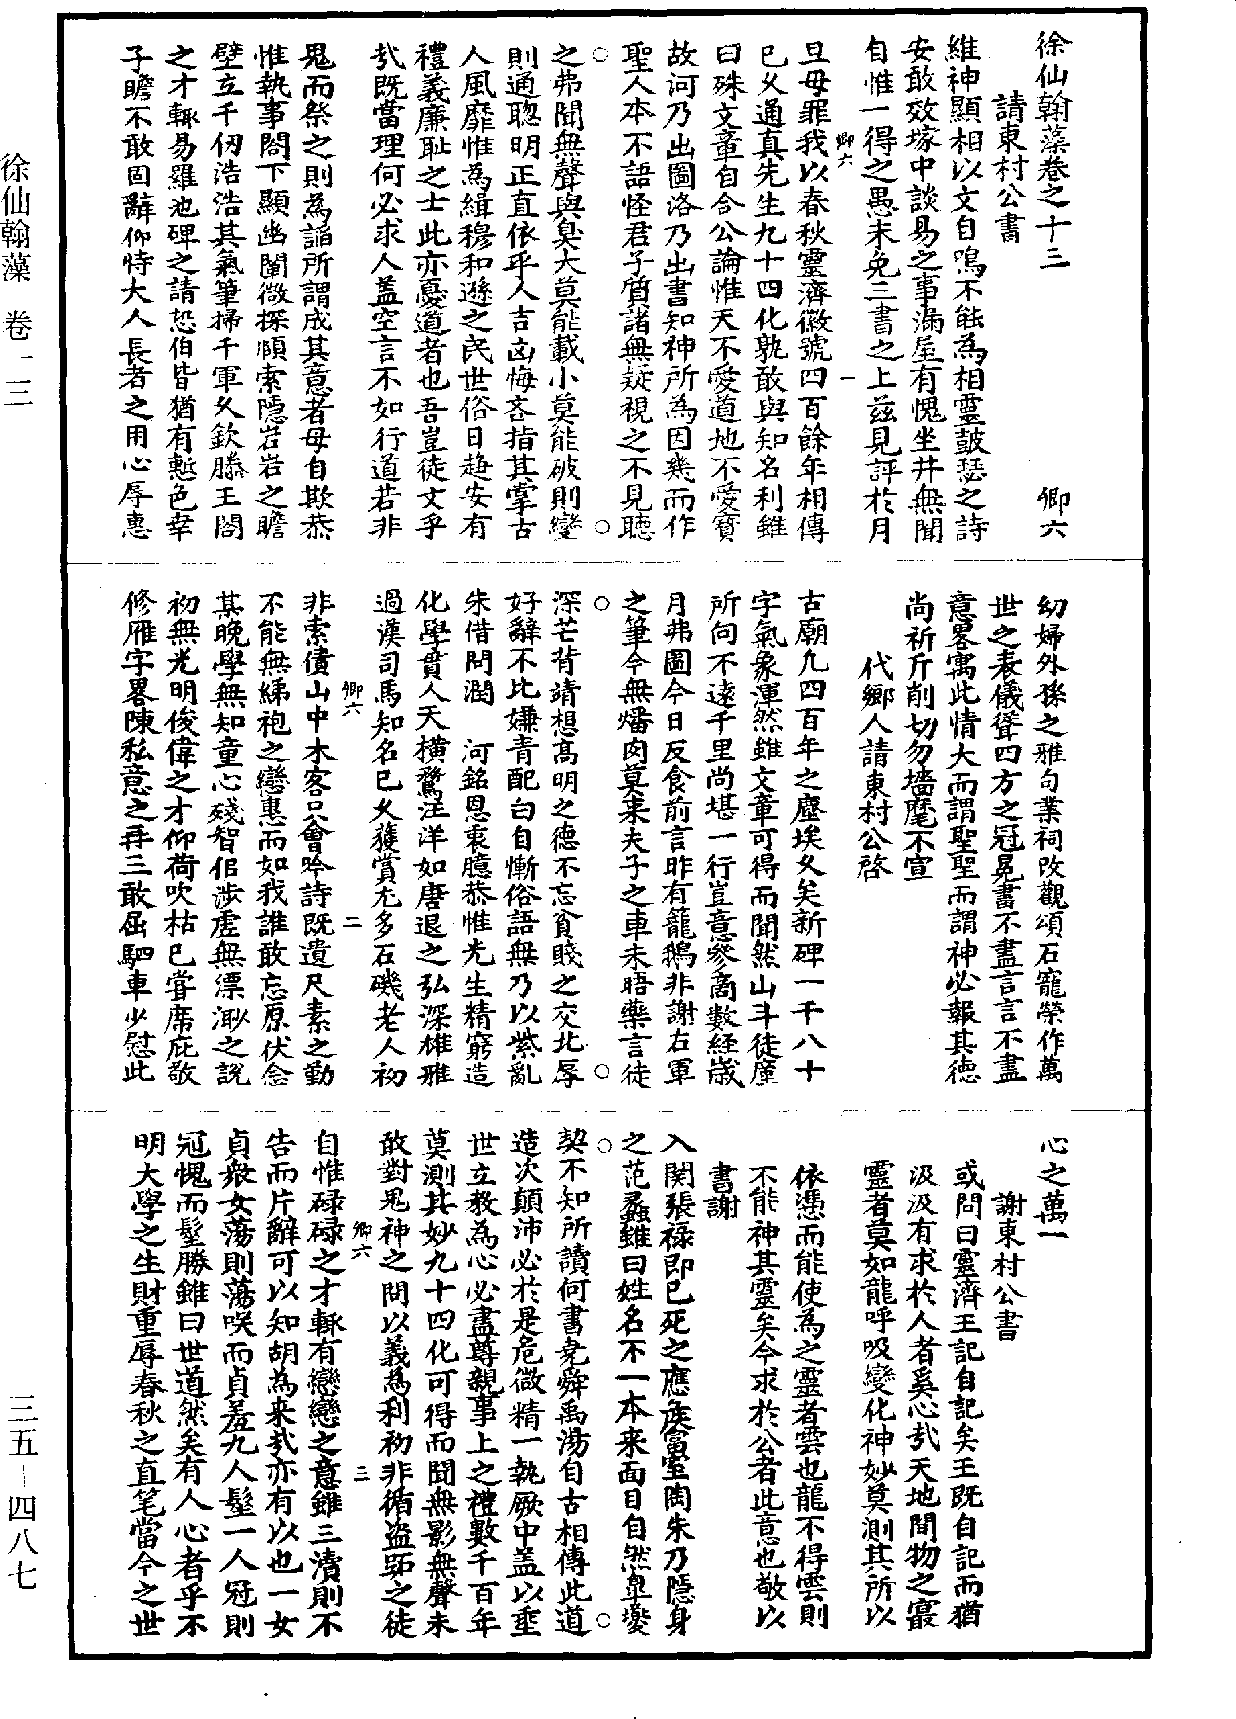 徐仙翰藻卷之十三　　卿六
請東村公書
維神顯相以文自鳴不能為相靈鼓瑟之詩
安敢效塚中談易之事滿屋有愧坐井無聞
自惟一得之愚未免三書之上茲見評於月
卿六　一
旦毋罪我以春秋靈濟徽號四百餘年相傳
已久通真先生九十四化孰敢與知名利雖
曰殊文章自合公論惟天不愛道地不愛寶
故河乃出圖洛乃出書知神所為因幾而作
聖人本不語怪君子質諸無疑視之不見聽
之弗聞無聲與臭大莫能載小莫能破則變
則通聰明正直依乎人吉凶悔吝指其掌古
人風靡惟為緝穆和遜之民世俗日趨安有
禮義廉恥之士此亦憂道者也吾豈徒文乎
哉既當理何必求人盖空言不如行道若非
鬼而祭之則為謟所謂成其意者毋自欺恭
惟執事閤下顯幽闡微探賾索隱岩岩之瞻
壁立千仞浩浩其氣筆掃千軍久欽滕王閣
之才輒易羅池碑之請恐伯皆猶有慙色幸
子瞻不敢固辭仰恃大人長者之用心辱惠
幼婦外孫之雅句業祠改觀頌石寵榮作萬
世之表儀聳四方之冠冕書不盡言言不盡
意畧寓此情大而謂聖聖而謂神必報其德
尚祈斤削切勿墻麾不宣
代鄉人請東村公啓
古廟凢四百年之塵埃久矣新碑一千八十
字氣象渾然雖文章可得而聞然山斗徒廑
所向不遠千里尚堪一行豈意參商數経歲
月弗圖今日反食前言昨有籠鵝非謝右軍
之筆今無燔肉莫来夫子之車未晤藥言徒
深芒背靖想髙明之德不忘貧賤之交北辱
好辭不比嫌青配白自慚俗語無乃以紫亂
朱借問潤　河銘恩衷臆恭惟先生精窮造
化學貫人天橫騖汪洋如唐退之弘深雄雅
過漢司馬知名已久獲賞尤多石磯老人初
卿六　二
非索債山中木客只會吟詩既遺尺素之勤
不能無綈袍之戀惠而如我誰敢忘原伏念
其晩學無知童心殘智佀涉虛無縹渺之說
初無光明俊偉之才仰荷吹枯已甞席庇敬
修雁字畧陳私意之再三敢屈駟車少慰此
心之萬一
謝東村公書
或問曰靈濟王記自記矣王既自記而猶
汲汲有求於人者奚心哉天地間物之寂
靈者莫如龍呼吸變化神妙莫測其所以
依憑而能使為之靈者雲也龍不得雲則
不能神其靈矣今求於公者此意也敬以
書謝
入関張禄即已死之應侯富室陶朱乃隱身
之范蠡雖曰姓名不一本来面目自然臯夔
契不知所讀何書堯舜禹湯自古相傳此道
造次顛沛必於是危微精一執厥中盖以垂
世立教為心必盡尊親事上之禮數千百年
莫測其妙九十四化可得而聞無影無聲未
敢對鬼神之問以義為利初非循盗跖之徒
卿六　三
自惟碌碌之才輒有戀戀之意雖三瀆則不
告而片辭可以知胡為来哉亦有以也一女
貞衆女蕩則蕩咲而貞羞九人髽一人冠則
冠愧而髽勝雖曰世道然矣有人心者乎不
明大學之生財重辱春秋之直笔當今之世
徐仙翰藻　卷一三
三五—四八七